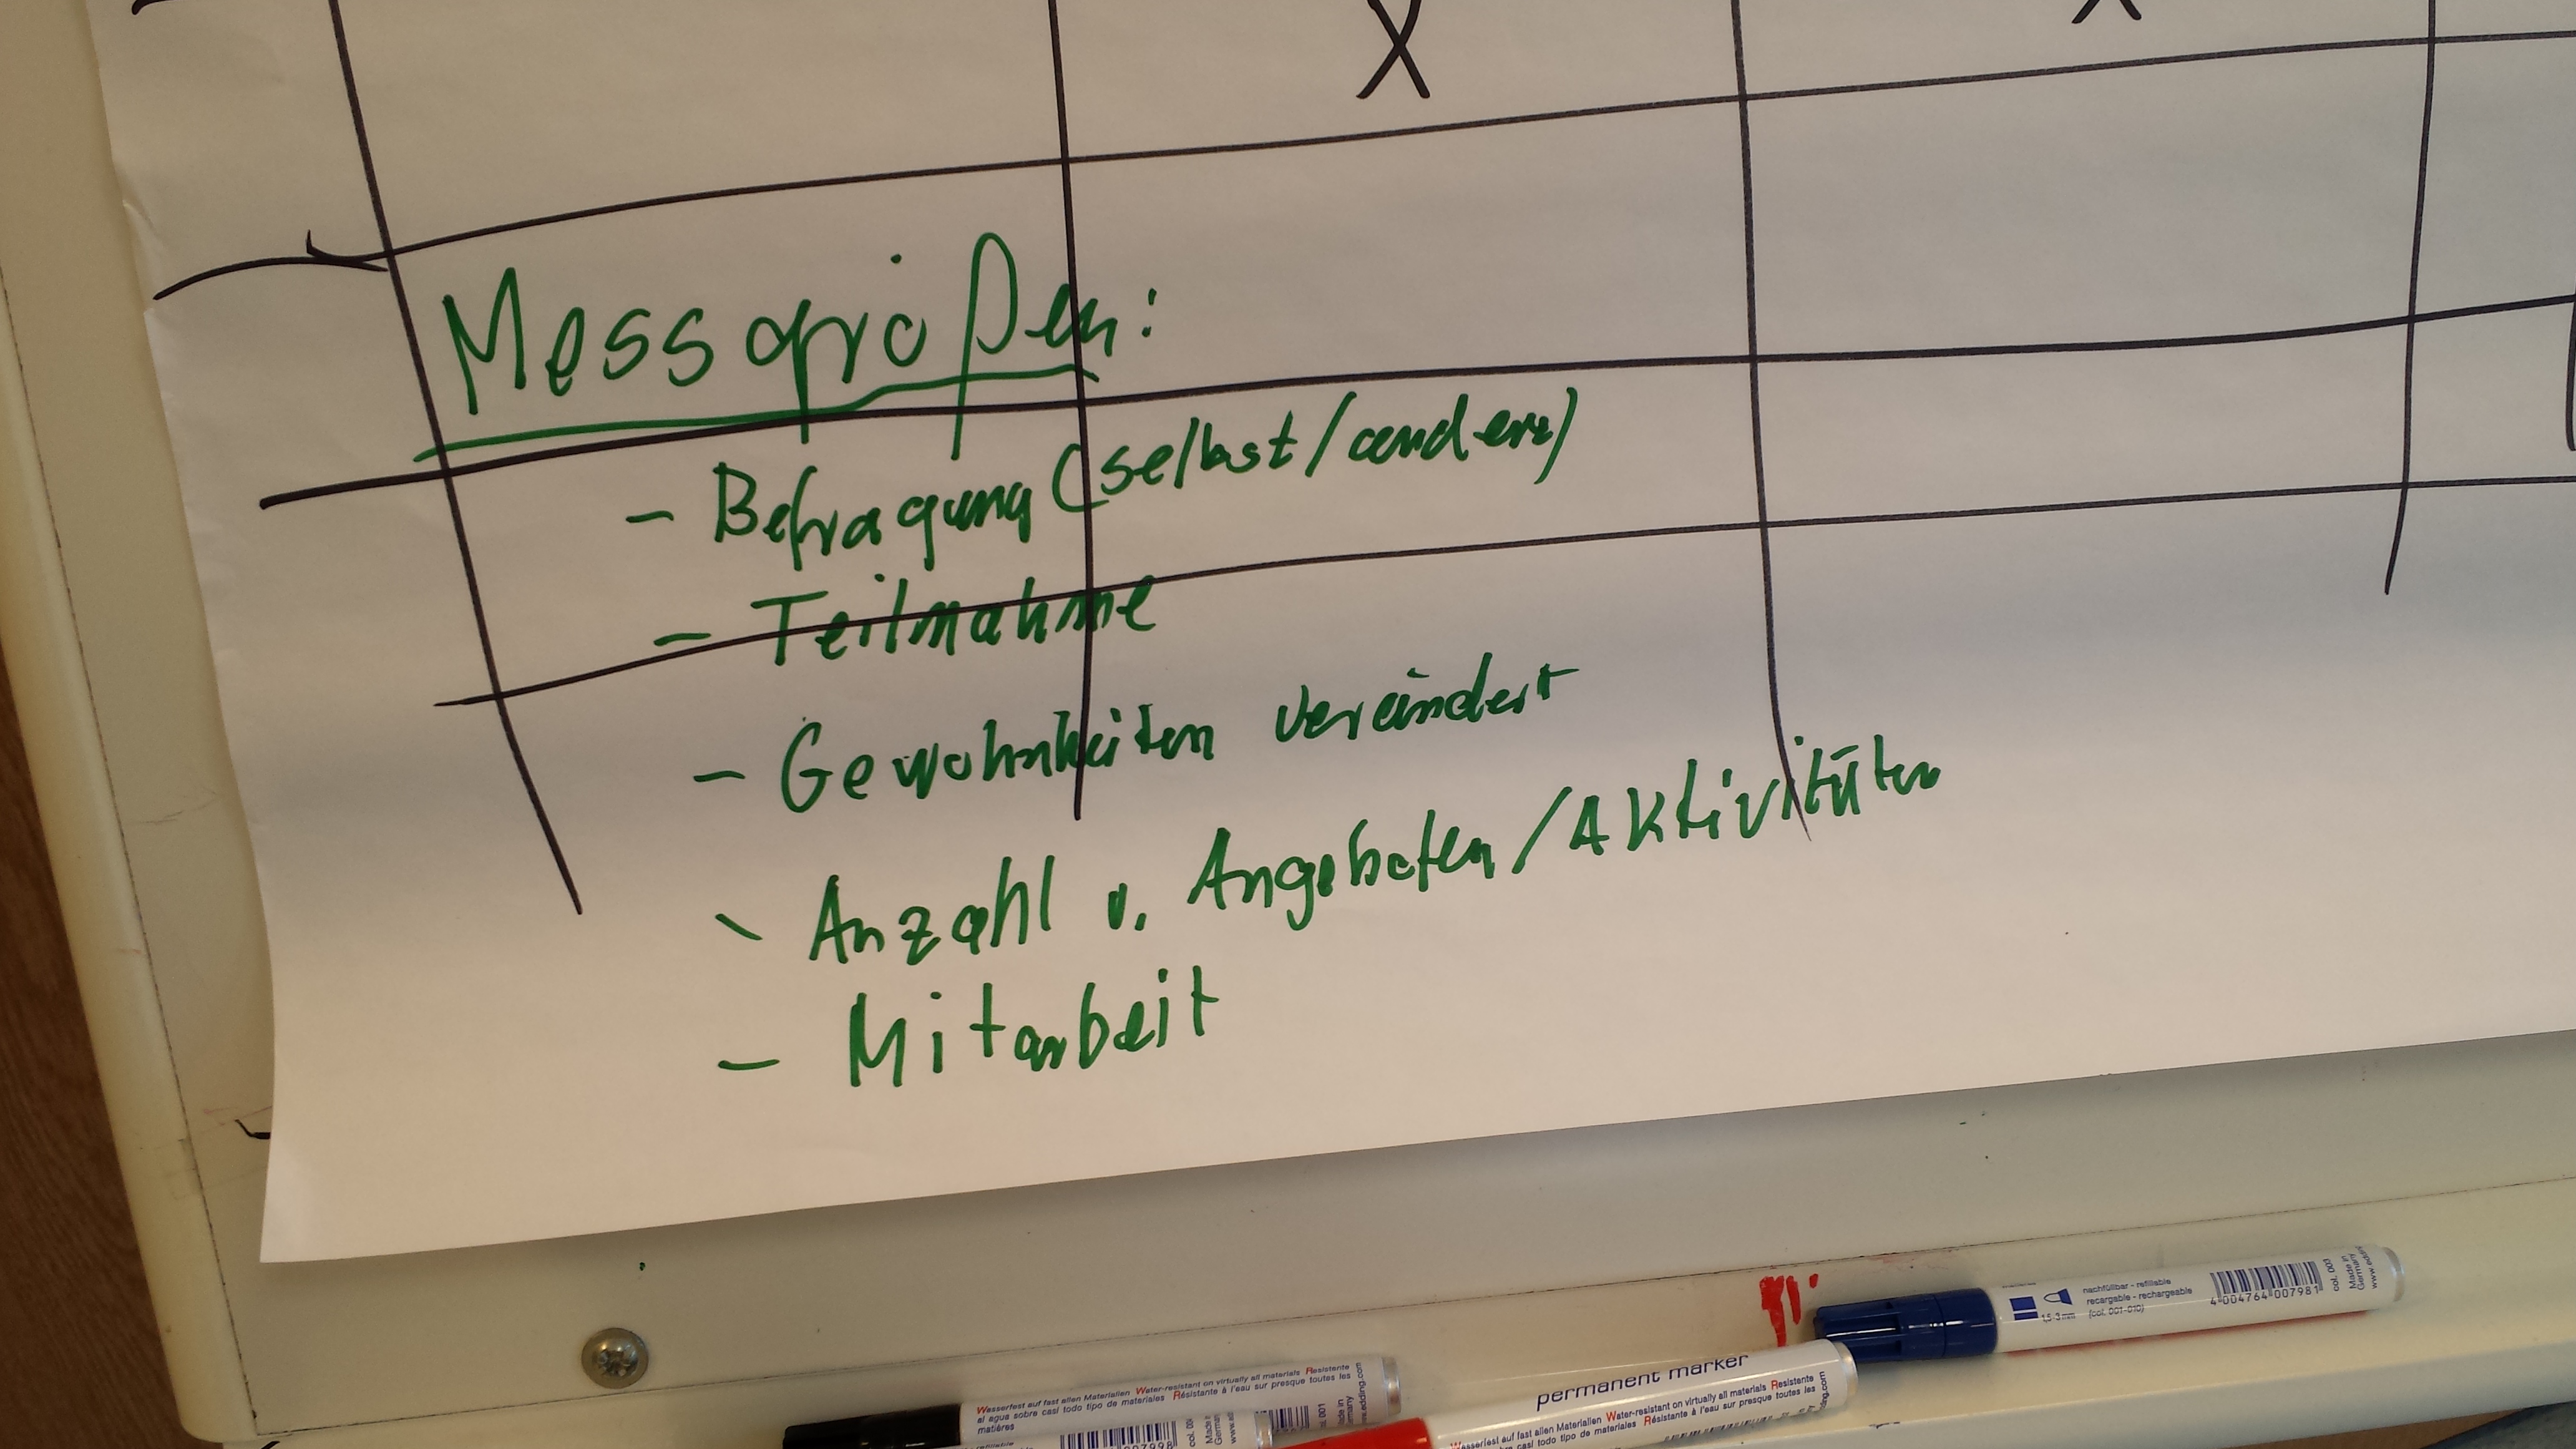 X
X
Messgrößen:
- Befragung (selbst/andere)
- Teilnahme
- Gewohnheiten verändert
- Anzahl v. Angeboten/Aktivitäten
- Mitarbeit
nachfüllbar - refillable
recargable - rechargeable
(col. 001-010)
1,5-3 mm
4 004764 007981
col. 003
Made in
Germany
www.eddi
permanent marker
Wasserfest auf fast allen Materialien Water-resistant on virtually all materials Resistente
al agua sobre casi todo tipo de materiales Résistante à l'eau sur presque toutes les
matières
col. 00
Made
Germ
www.e
001
de in
many
w.edding.com
refillable
007998
Wasserfest auf fast allen Materialien Water-resistant on virtually all materials Resistente
sobre casi todo tipo de materiales Résistante à l'eau sur presque toutes les
edding.com